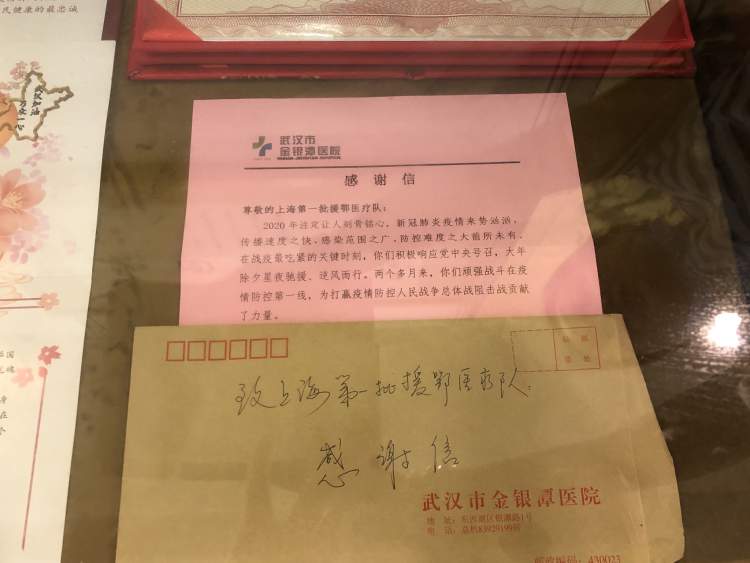 民健康的最忠诚
武汉加油
万众一心
武汉市
金银潭医院
感谢信
尊敬的上海第一批援鄂医疗队：
2020年注定让人刻骨铭心，新冠肺炎疫情来势汹汹，
传播速度之快、感染范围之广、防控难度之大前所未有。
在战疫最吃紧的关键时刻，你们积极响应党中央号召，大年
除夕星夜驰援、逆风而行。两个多月来，你们顽强战斗在疫
情防控第一线，为打赢疫情防控人民战争总体战阻击战贡献
了力量。
贴邮
票处
致上海第一批援鄂医疗队：
感谢信
武汉市金银潭医院
地址：东西湖区银潭路1号
邮政编码：430023